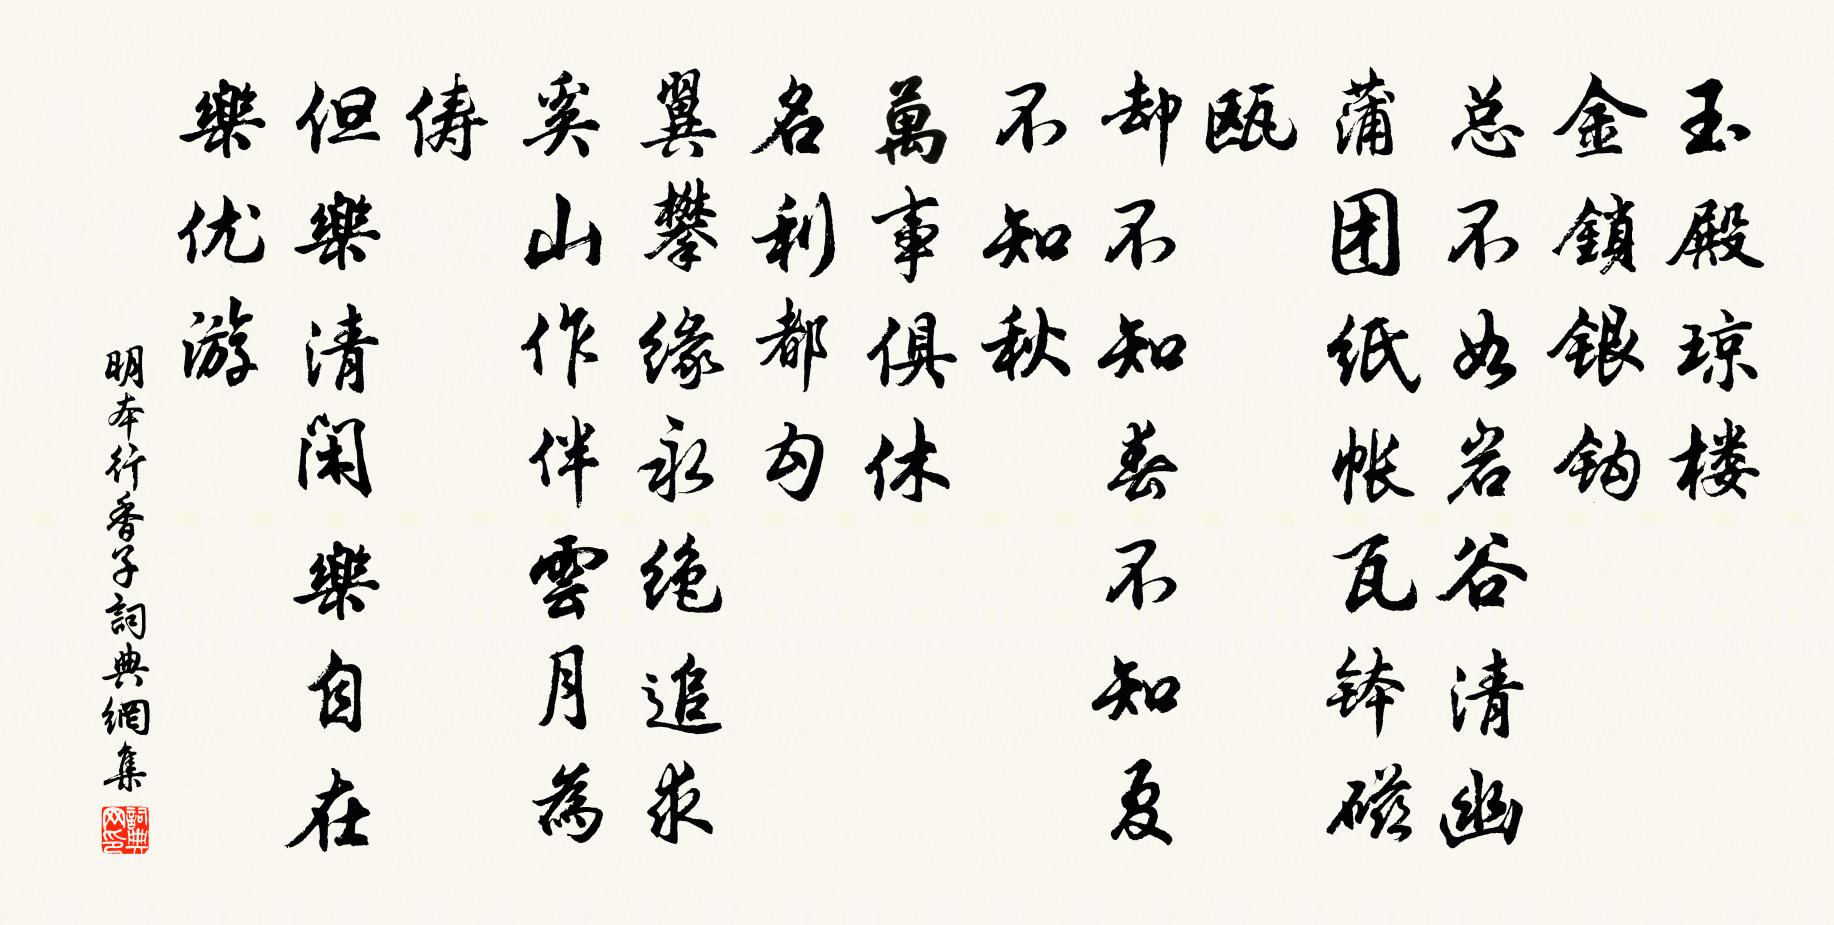 玉殿琼楼
金鎖银钩
总不如岩谷清幽
蒲团纸帐瓦钵磁
瓯
却不知春不知夏
不知秋
萬事俱休
名利都勾
翼攀缘永绝追求
奚山作伴雲月為
俦
但樂清闲樂自在
樂优游
明本行香子詞典網集
詞典网印